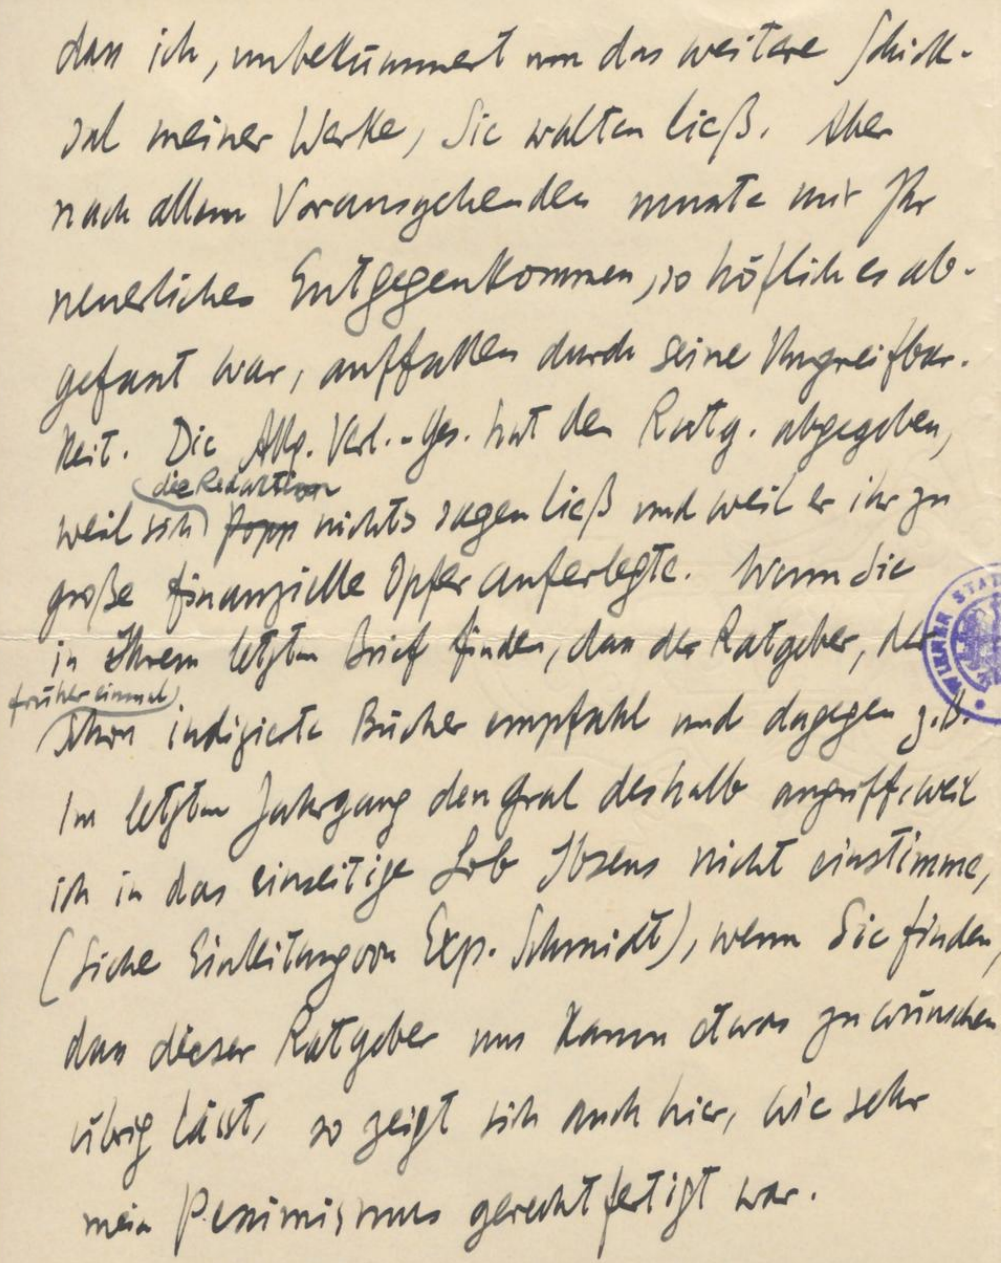 dass ich, unbekümmert um das weitere Schick-
sal meiner Werke, Sie walten ließ. Aber
nach allem Vorausgehenden musste mir Ihr
neuerliches Entgegenkommen, so höflich es ab-
gefasst war, auffallen durch seine Ungreifbar-
keit. Die Allg. Verl.-Ges. hat den Ratg. abgegeben,
die Redaktion
weil sich Popp nichts sagen ließ und weil er ihr zu
große finanzielle Opfer auferlegte. Wenn Sie
in Ihrem letzten Brief finden, dass der Ratgeber, der
früher einmal
schon indizierte Bücher empfahl und dagegen z.B.
im letzten Jahrgang den Gral deshalb angriff, weil
ich in das einseitige Lob Ibsens nicht einstimme,
(Siehe Einleitung von Exp. Schmidt), wenn Sie finden,
dass dieser Ratgeber uns kaum etwas zu wünschen
übrig lässt, so zeigt sich auch hier, wie sehr
mein Pessimismus gerechtfertigt war.
WIENER STA